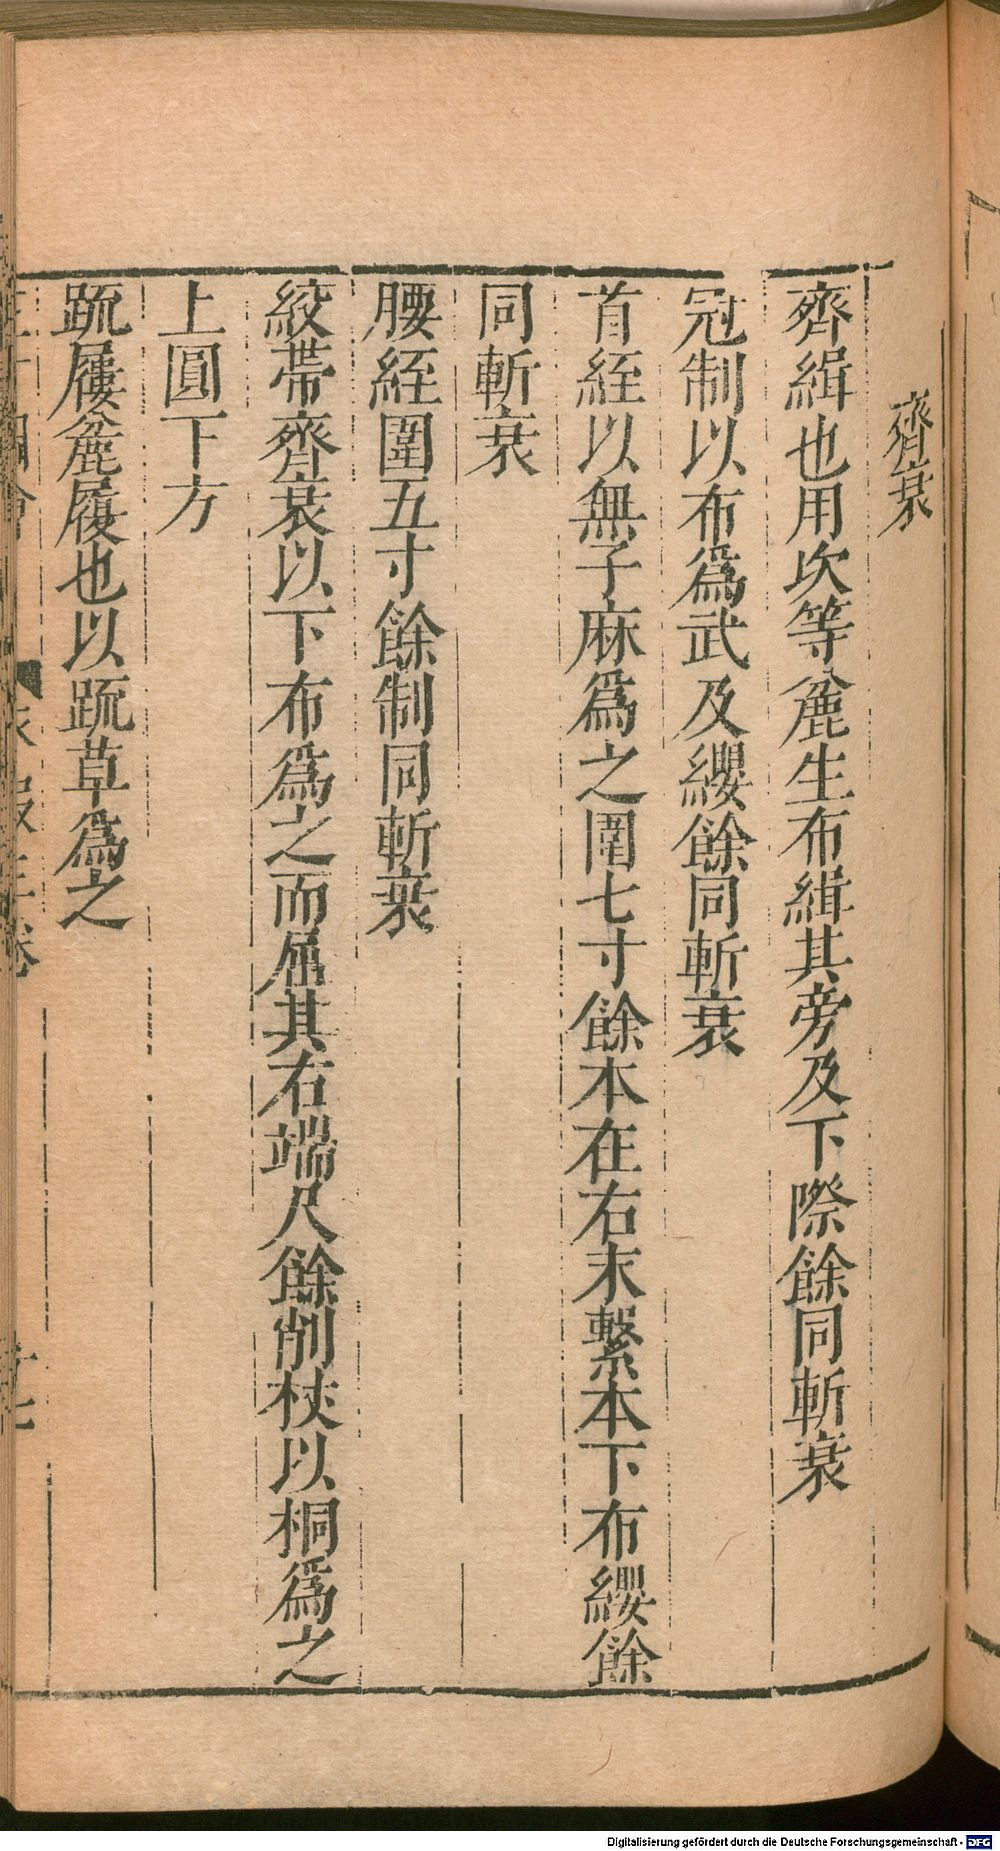 齊衰
齊緝也用次等麄生布緝其旁及下際餘同斬衰
冠制以布爲武及纓餘同斬衰
首絰以無子麻爲之圍七寸餘本在右末繫本下布纓餘
同斬衰
腰絰圍五寸餘制同斬衰
絞帶齊衰以下布爲之而屈其右端尺餘削杖以桐爲之
上圓下方
䟽屨麄履也以䟽草爲之
Digitalisierung gefördert durch die Deutsche Forschungsgemeinschaft - DFG